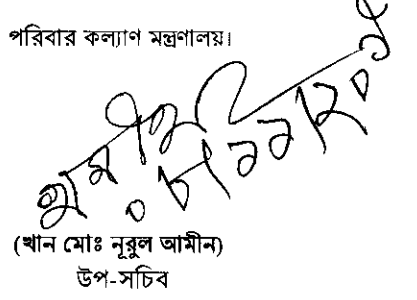 পরিবার কল্যাণ মন্ত্রণালয়।
(খান মোঃ নূরুল আমীন)
উপ-সচিব